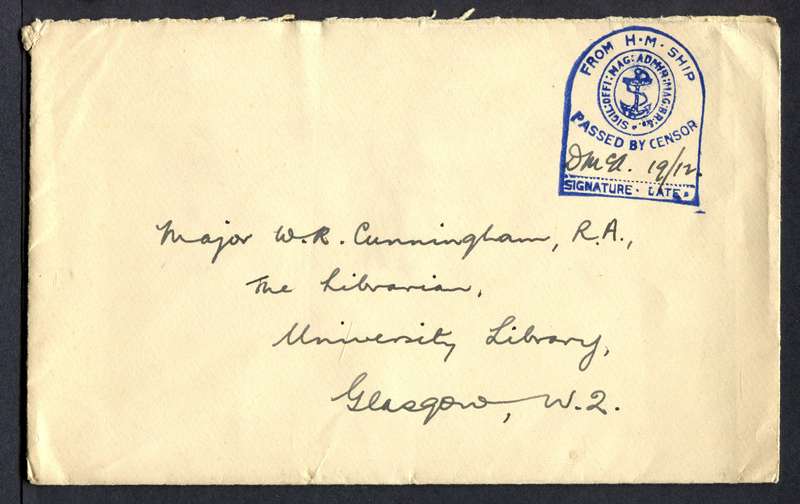 FROM H·M·SHIP
SIGIL: OFFI: MAG: ADMIR: MAG: BR: &c.
PASSED BY CENSOR
19/12.
SIGNATURE· DATE·
Major W.R. Cunningham, R.A.,
The Librarian,
University Library,
Glasgow, W.2.